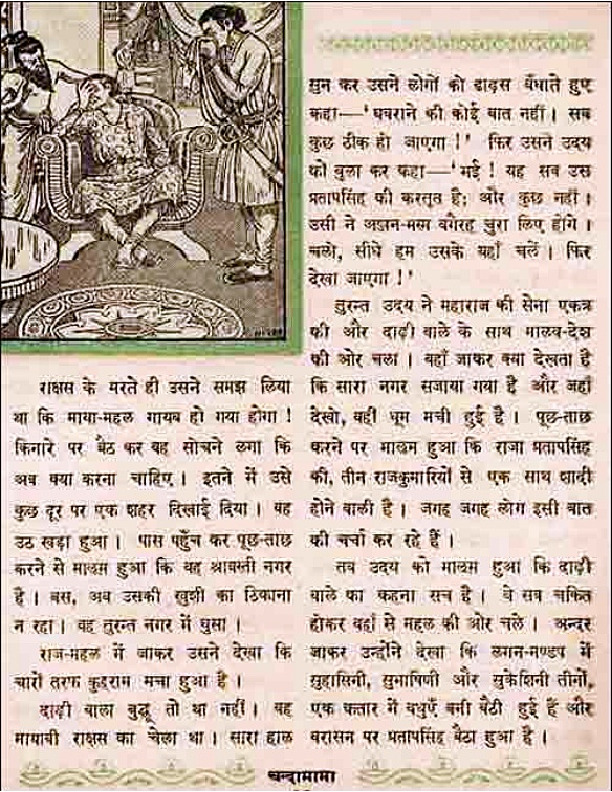 राक्षस के मरते ही उसने समझ लिया
था कि माया-महल गायब हो गया होगा !
किनारे पर बैठ कर वह सोचने लगा कि
अब क्या करना चाहिए । इतने में उसे
कुछ दूर पर एक शहर दिखाई दिया । वह
उठ खड़ा हुआ । पास पहुँच कर पूछ-ताछ
करने से मालूम हुआ कि वह श्रावस्ती नगर
है । बस, अब उसकी खुशी का ठिकाना
न रहा । वह तुरन्त नगर में घुसा ।
राज-महल में जाकर उसने देखा कि
चारों तरफ कुहराम मचा हुआ है ।
दाढ़ी वाला बुद्धू तो था नहीं । वह
मायावी राक्षस का चेला था । सारा हाल
सुन कर उसने लोगों को ढाढ़स बँधाते हुए
कहा—' घबराने की कोई बात नहीं । सब
कुछ ठीक हो जाएगा !' फिर उसने उदय
को बुला कर कहा—'भई ! यह सब उस
प्रतापसिंह की करतूत है; और कुछ नहीं ।
उसी ने अञ्जन-भस्म वगैरह चुरा लिए होंगे ।
चलो, सीधे हम उसके यहाँ चलें । फिर
देखा जाएगा !'
तुरन्त उदय ने महाराज की सेना एकत्र
की और दाढ़ी वाले के साथ मालव-देश
की ओर चला । वहाँ जाकर क्या देखता है
कि सारा नगर सजाया गया है और जहाँ
देखो, वहीं धूम मची हुई है । पूछ-ताछ
करने पर मालूम हुआ कि राजा प्रतापसिंह
की, तीन राजकुमारियों से एक साथ शादी
होने वाली है । जगह जगह लोग इसी बात
की चर्चा कर रहे हैं ।
तब उदय को मालूम हुआ कि दाढ़ी
वाले का कहना सच है । वे सब चकित
होकर वहाँ से महल की ओर चले । अन्दर
जाकर उन्होंने देखा कि लगन-मण्डप में
सुहासिनी, सुभाषिणी और सुकेशिनी तीनों,
एक कतार में वधुएँ बनी बैठी हुई हैं और
वरासन पर प्रतापसिंह बैठा हुआ है ।
चन्दामामा